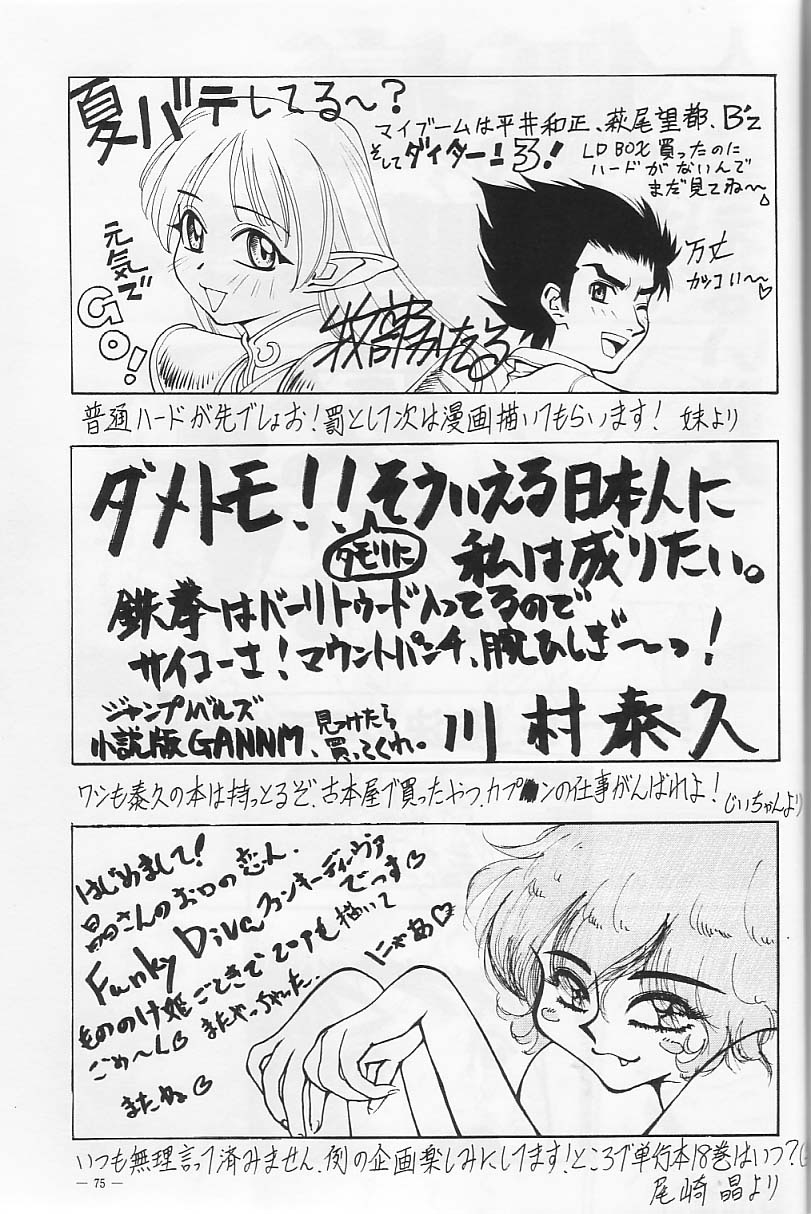 夏バテしてる〜?
マイブームは平井和正、萩尾望都、B'z
そしてダイターン3!
LD BOX 買ったのに
ハードがないんで
まだ見てね〜
元気で
GO!
万丈
カッコい〜♡
牧部かたる
普通ハードが先でしょお!罰として次は漫画描いてもらいます! 妹より
ダメトモ!!そういえる日本人に
タモリに
私は成りたい。
鉄拳はバーリトゥード入ってるので
サイコーさ!マウントパンチ、腕ひしぎ〜っ!
ジャンプノベルズ
小説版GANNM、見つけたら
買ってくれ。
川村泰久
ワシも泰久の本は持っとるぞ、古本屋で買ったやつ、カプ ンの仕事がんばれよ! じいちゃんより
はじめまして!
晶さんのお口の恋人、
Funky Divaファンキーディヴァ
でっす♡
もののけ姫ごときで2コマも描いて
にゃあ♡
ごめ〜ん♡ またやっちゃった。
またね♡
いつも無理言って済みません、例の企画楽しみにしてます!ところで単行本18巻はいつ?(
尾崎 晶より
— 75 —